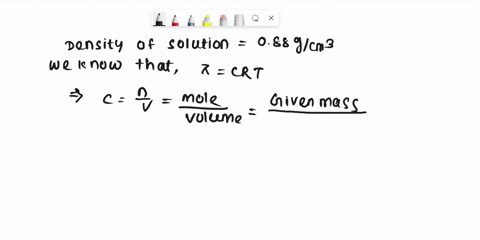 Density of solution = 0.88 g/cm3
we know that, π = CRT
⇒ C = n/V = mole/volume = Given mass/